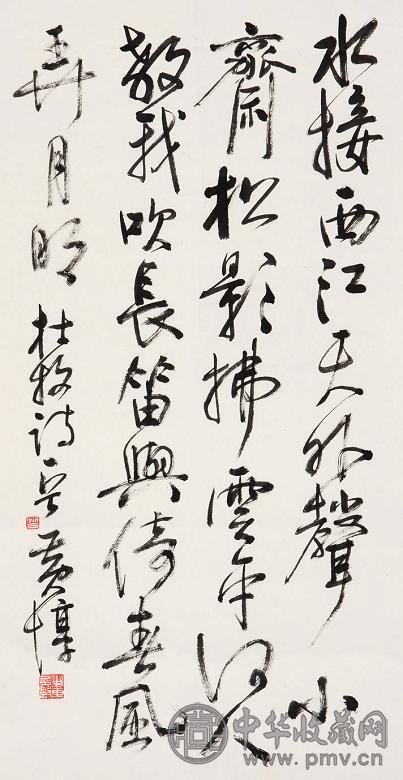 水接西江天外聲小
齋松影拂雲平何人
教我吹長笛與倚春風
弄月明 杜牧诗 黄惇
中华收藏网
www.pmv.cn